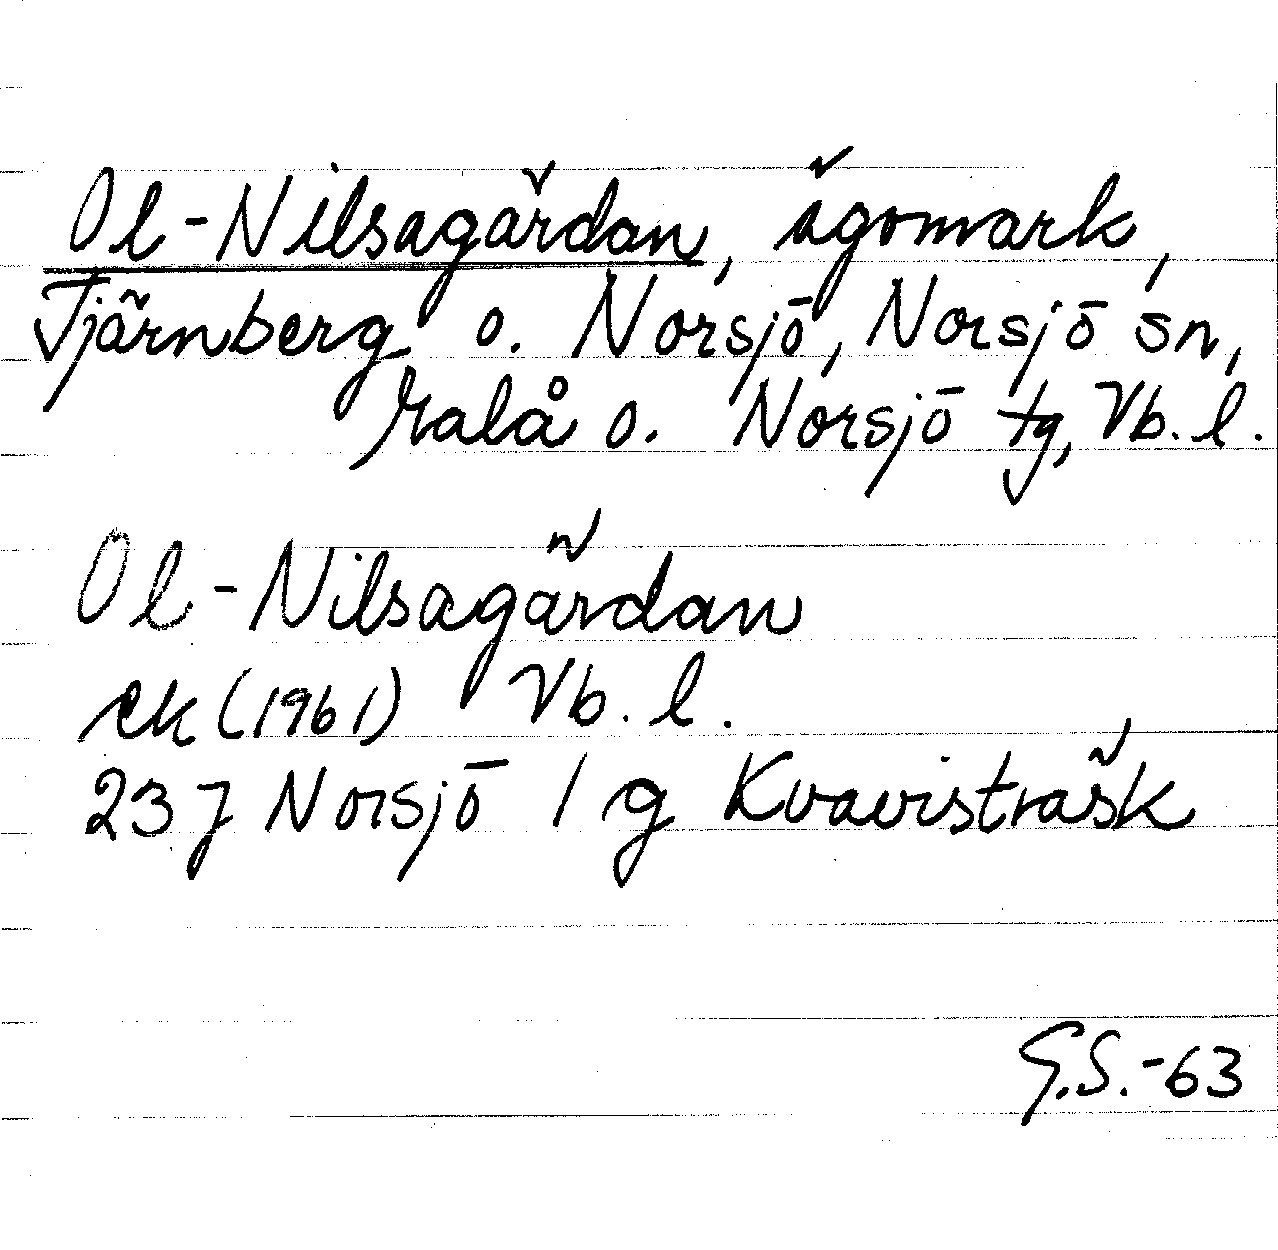 Ol-Nilsagärdan, ägomark,
Tjärnberg o. Norsjö, Norsjö sn,
Malå o. Norsjö tg, Vb. l.
Ol-Nilsagärdan
ek (1961) Vb. l.
23 J Norsjö 1 g Kvavisträsk
G.S.-63